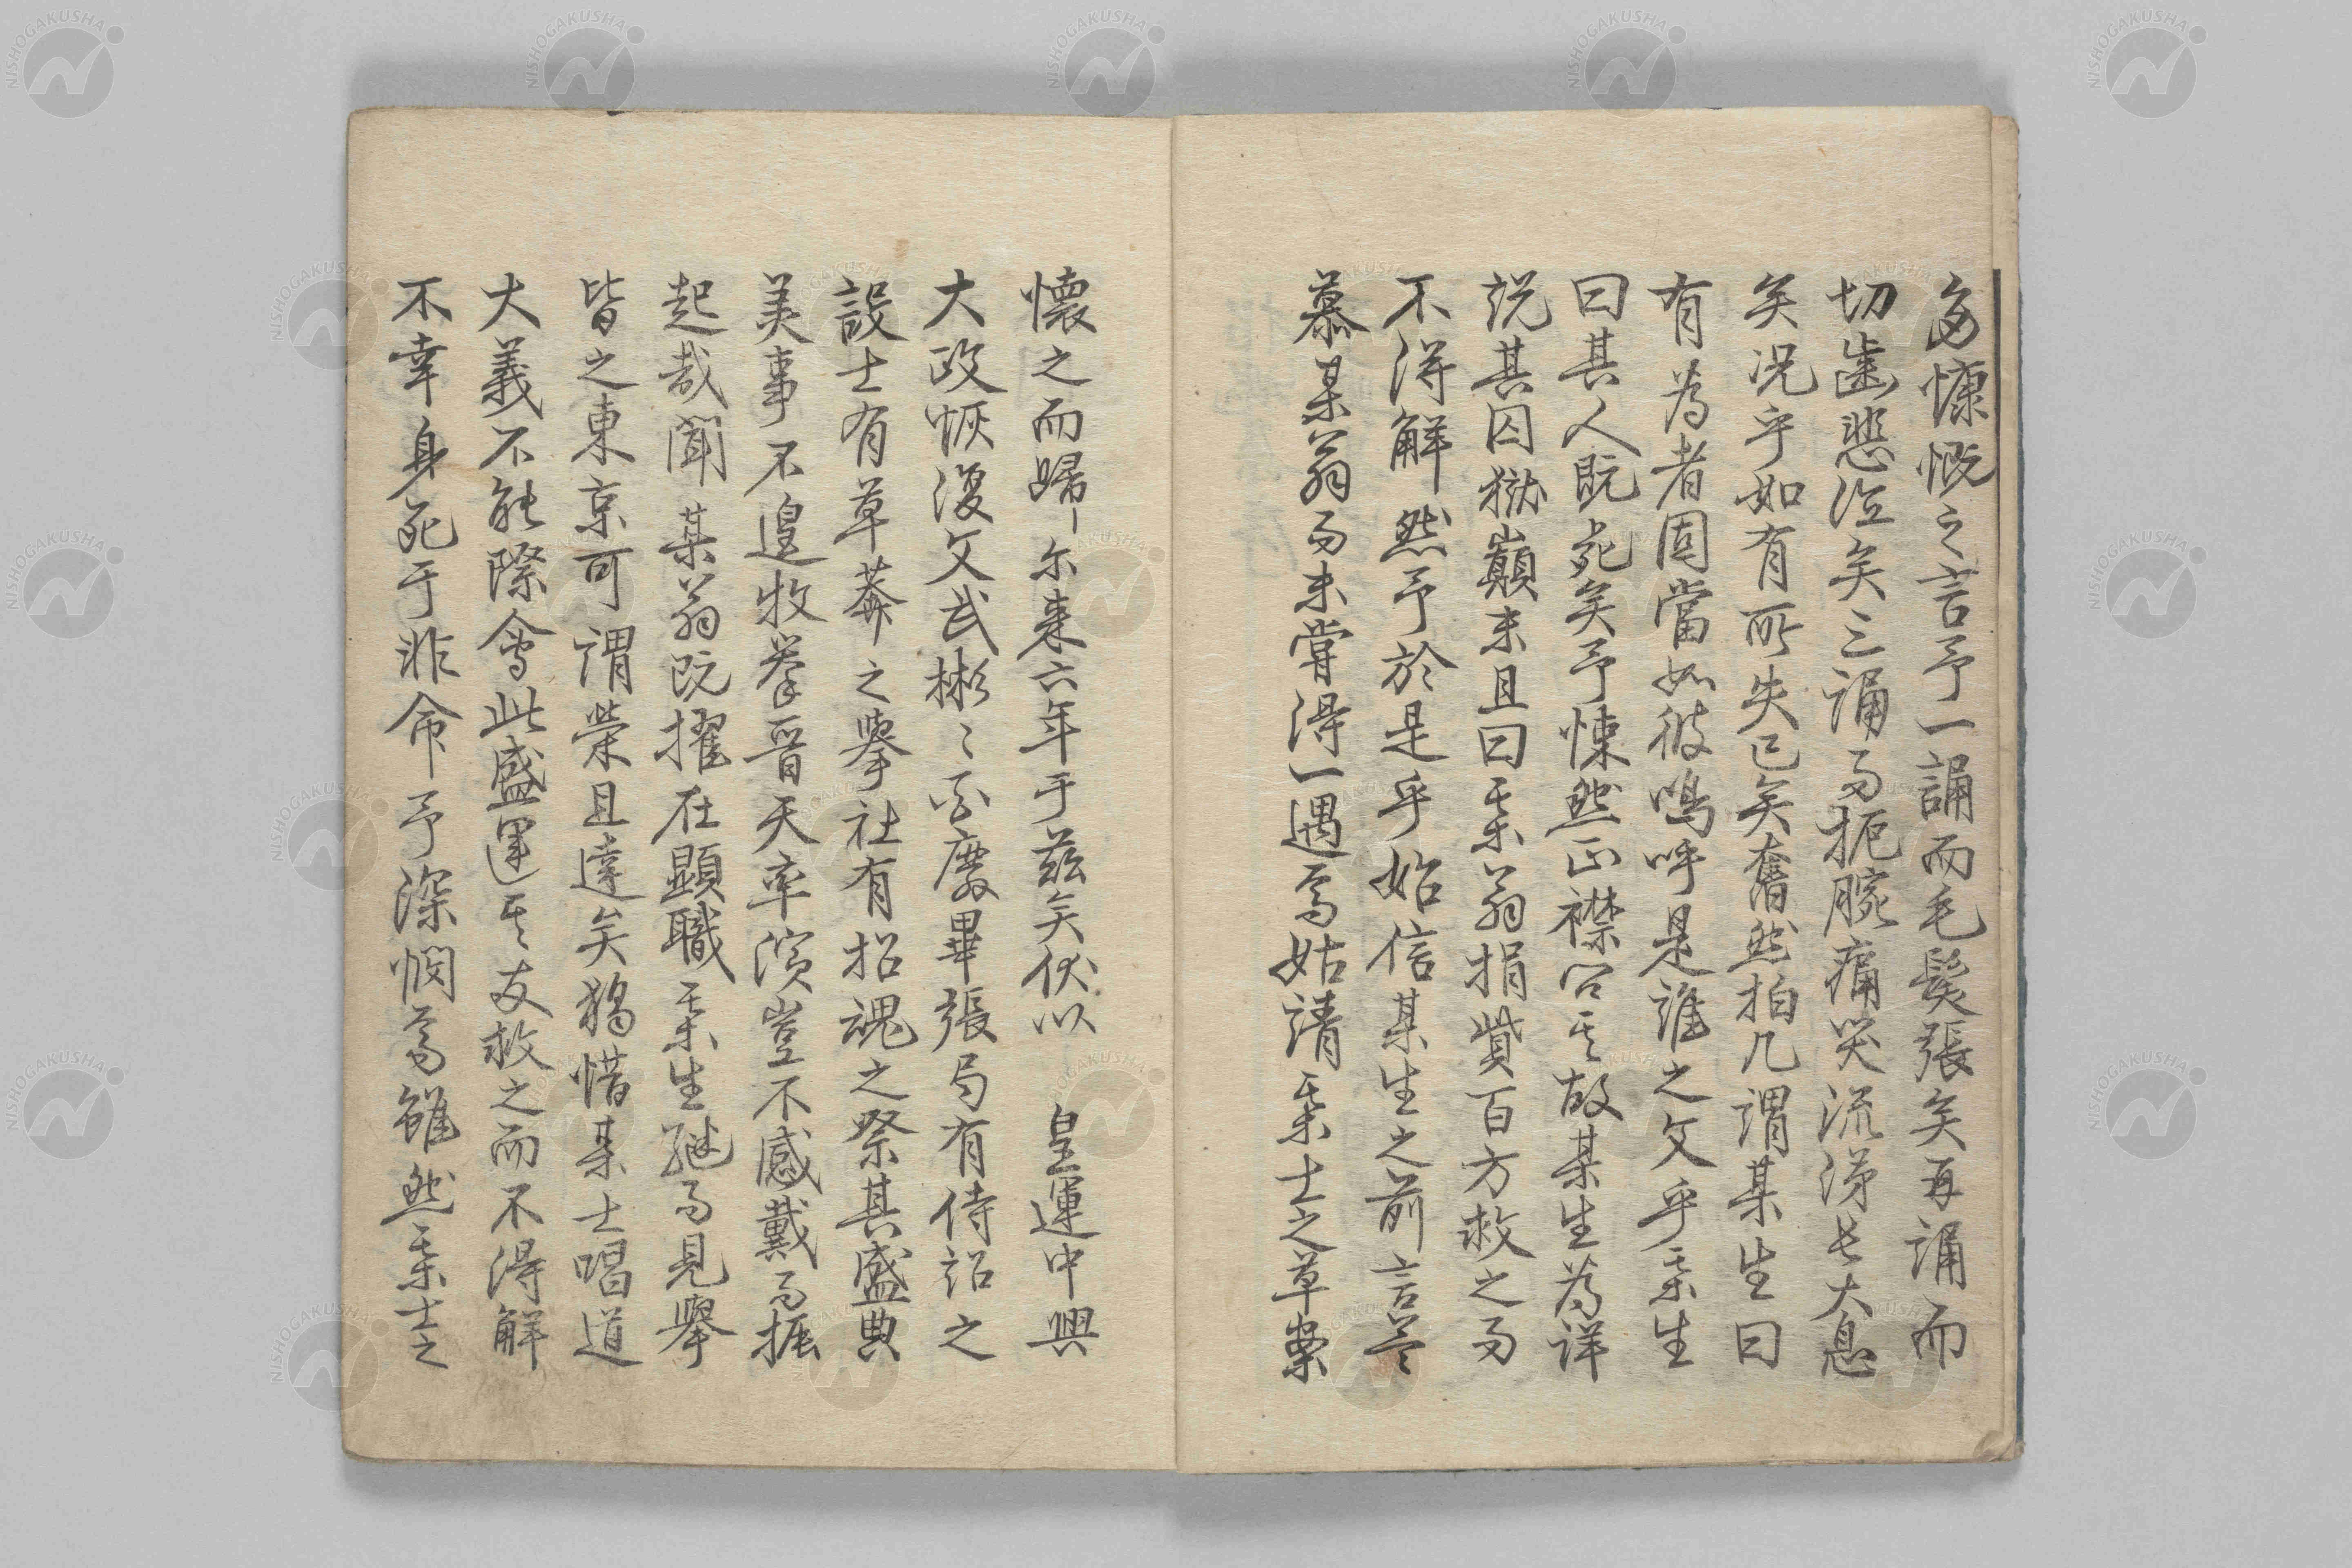 多慷慨之言予一誦而毛髮張矣再誦而
切齒悲泣矣三誦而扼腕痛哭流涕長大息
矣況乎如有所失已矣奮然拍几謂某生曰
有為者固當如彼嗚呼是誰之文乎某生
曰其人既死矣予悚然正襟問其故某生為詳
説其囚獄巔末且曰某翁捐貲百方救之而
不得解然予於是乎始信某生之前言益
慕某翁而未嘗得一遇焉姑請某士之草稾
懷之而歸尓来六年于茲矣伏以 皇運中興
大政恢復文武彬〻百廢畢張局有侍詔之
設士有草莽之擧社有招魂之祭其盛典
美事不遑枚擧普天率濱豈不感戴而振
起哉聞某翁既擢在顯職某生継而見擧
皆之東京可謂榮且達矣獨惜某士唱道
大義不能際會此盛運其友救之而不得解
不幸身死于非命予深憫焉雖然某士之
NISHOGAKUSHA